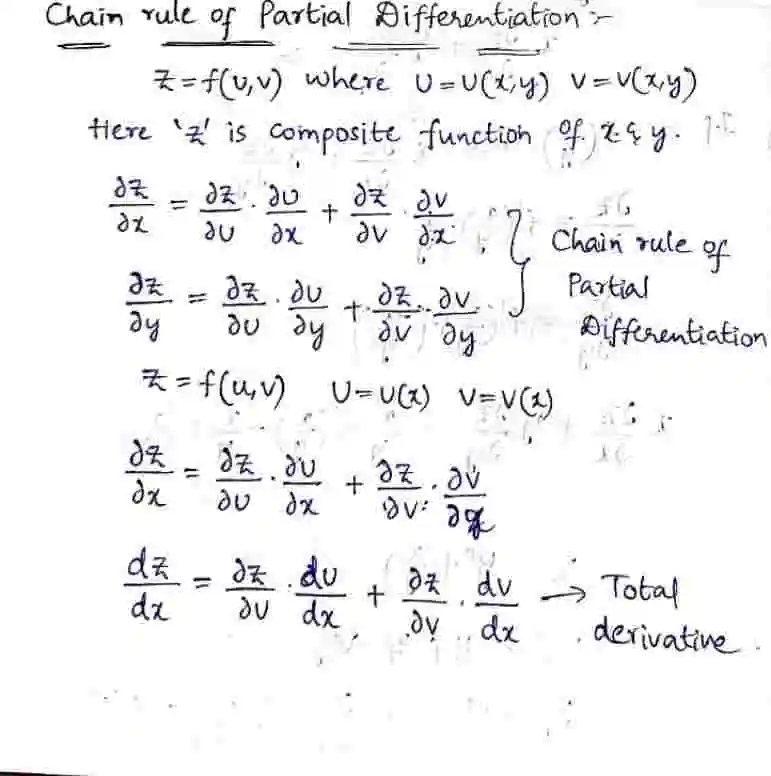 Chain rule of Partial Differentiation :-
z = f(u,v) where u = u(x,y) v = v(x,y)
Here 'z' is composite function of x & y.
∂z/∂x = ∂z/∂u · ∂u/∂x + ∂z/∂v · ∂v/∂x
∂z/∂y = ∂z/∂u · ∂u/∂y + ∂z/∂v · ∂v/∂y
} Chain rule of
Partial
Differentiation
z = f(u,v) u = u(x) v = v(x)
∂z/∂x = ∂z/∂u · ∂u/∂x + ∂z/∂v · ∂v/∂x
dz/dx = ∂z/∂u · du/dx + ∂z/∂v · dv/dx → Total
derivative.